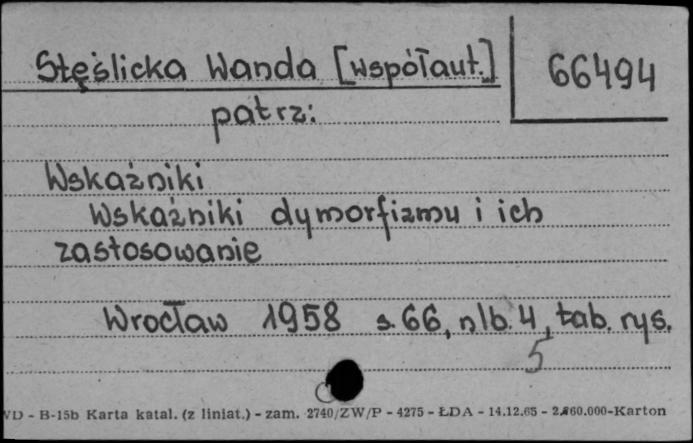 Stęślicka Wanda [współaut.]
66494
patrz:
Wskaźniki
Wskaźniki dymorfizmu i ich
zastosowanie
Wrocław 1958 s. 66, nlb. 4, tab. rys.
5
VD - B-15b Karta katal. (z liniat.) - zam. 2740/ZW/P - 4275 - ŁDA - 14.12.65 - 2.860.000-Karton